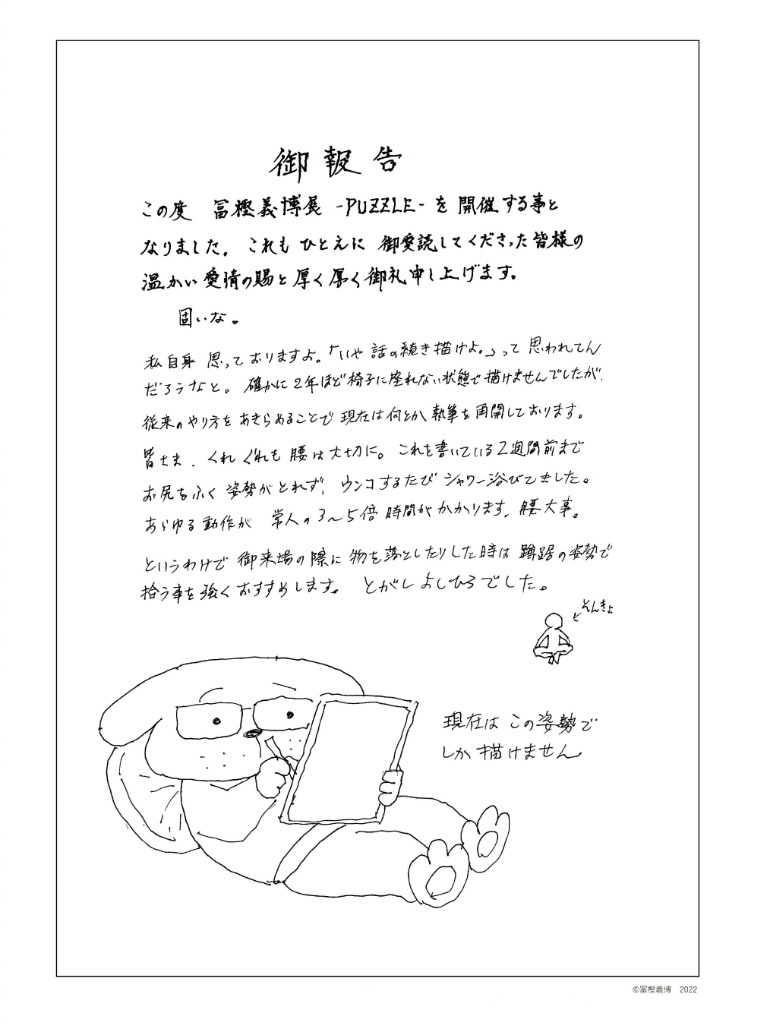 御報告
この度 冨樫義博展 -PUZZLE- を開催する事と
なりました。これもひとえに 御愛読してくださった皆様の
温かい愛情の賜と厚く厚く御礼申し上げます。
固いな。
私自身 思っておりますよ。「いや 話の続き描けよ。」って 思われてん
だろうなと。確かに2年ほど椅子に座れない状態で描けませんでしたが、
従来のやり方をあきらめることで現在は何とか執筆を再開しております。
皆さま、くれぐれも腰は大切に。これを書いている2週間前まで
お尻をふく姿勢がとれず、ウンコするたびシャワー浴びてきました。
あらゆる動作が 常人の3〜5倍時間がかかります。腰大事。
というわけで 御来場の際に物を落としたりした時は 蹲踞の姿勢で
拾う事を強くおすすめします。とがしよしひろでした。
そんきょ
現在は この姿勢で
しか描けません
©冨樫義博 2022